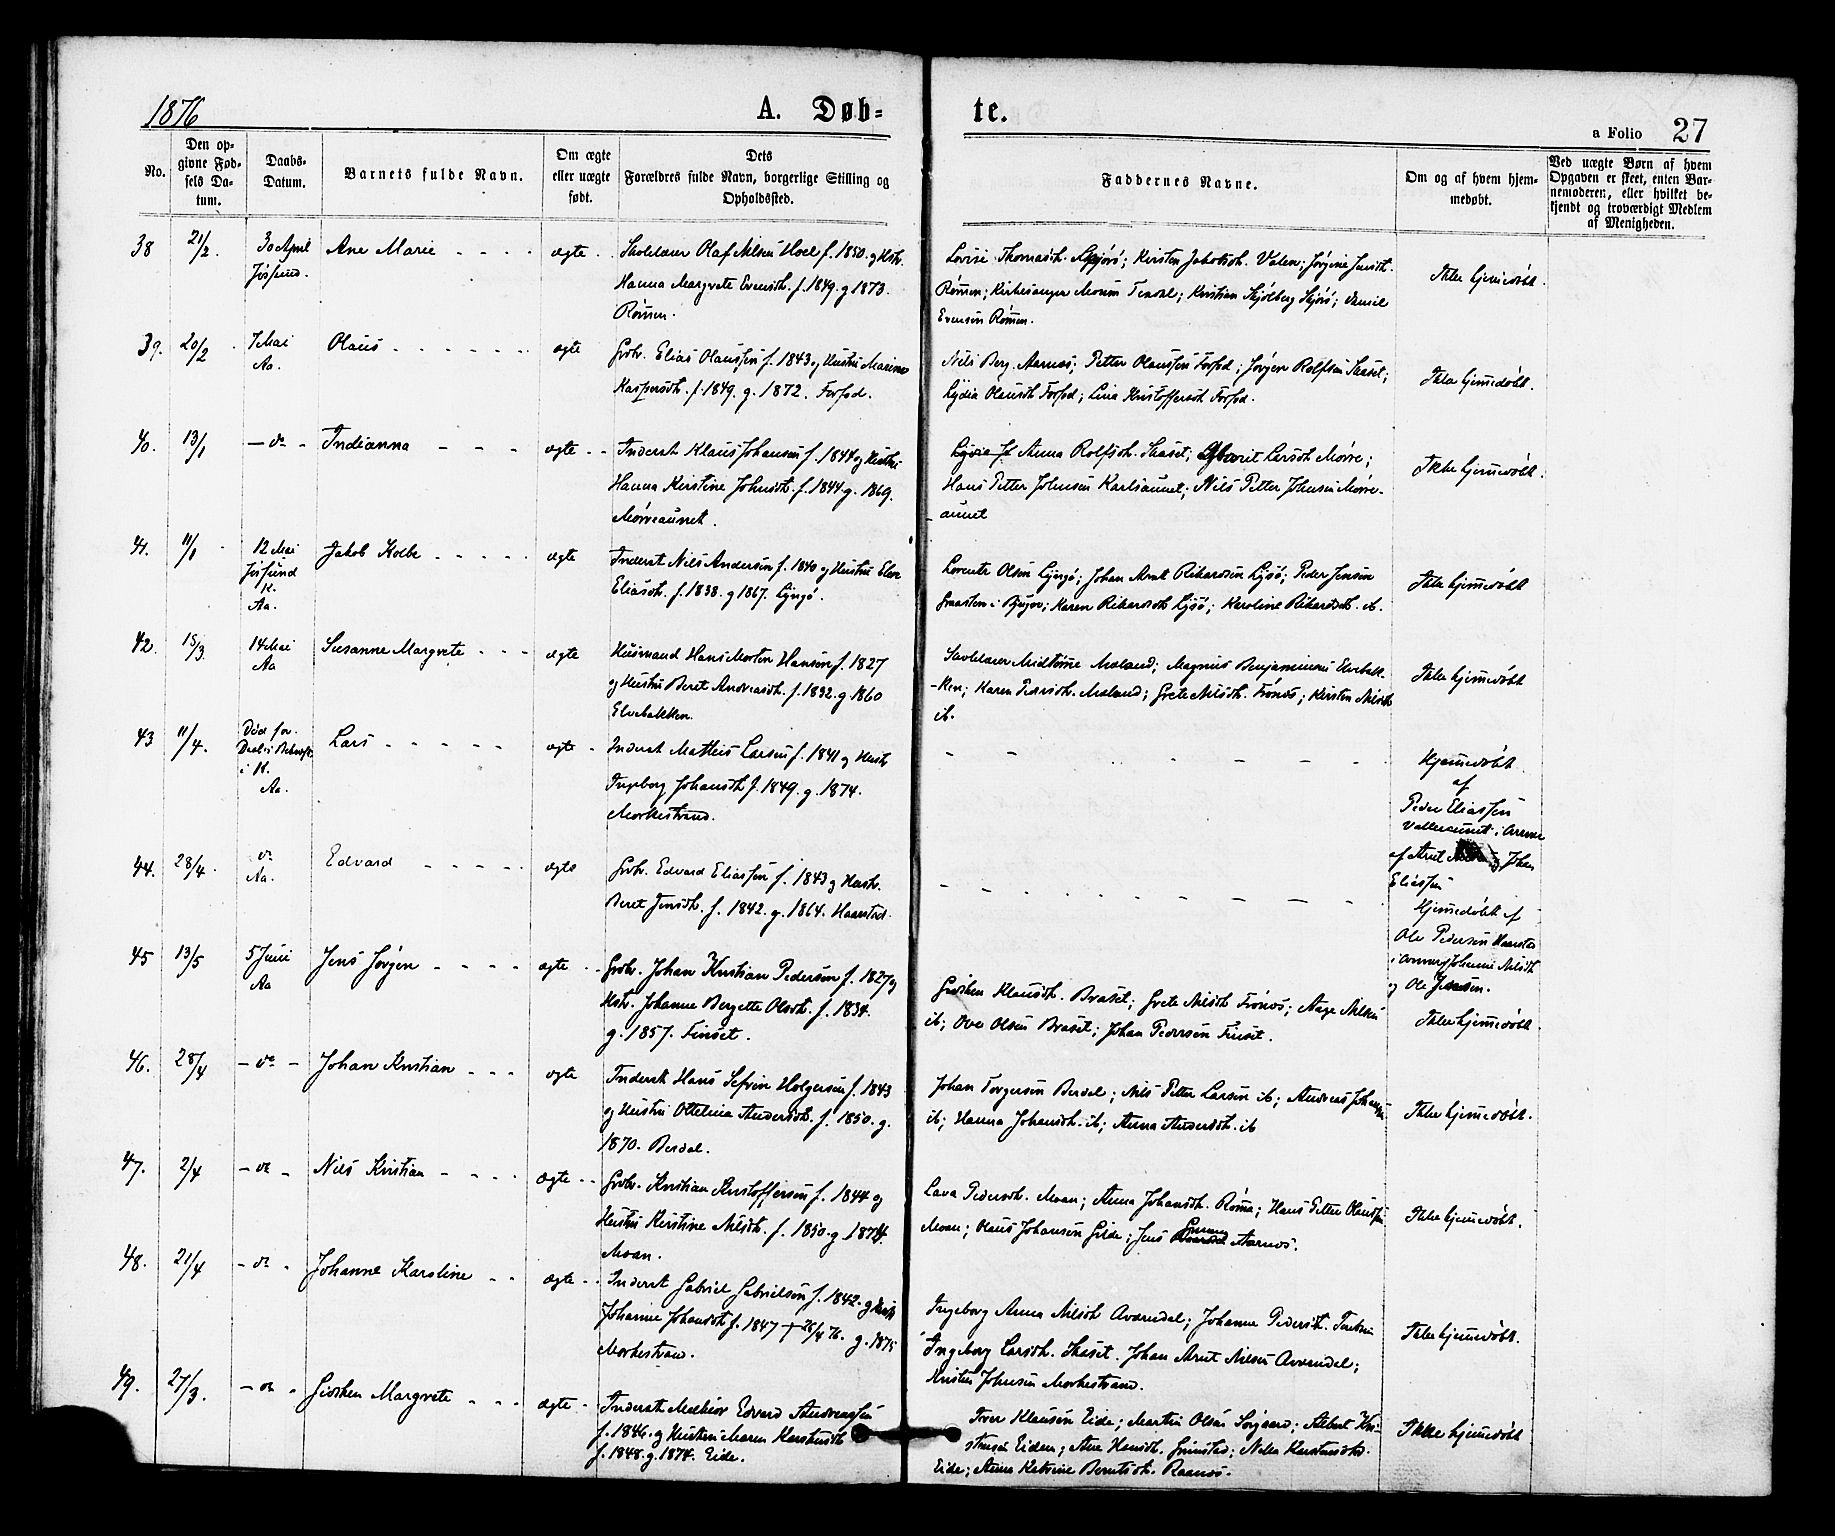 1876
A. Døb-
te.
a Folio 27
No.
Den op-
givne Fød-
sels Da-
tum.
Daabs-
Datum.
Barnets fulde Navn.
Om ægte
eller uægte
født.
Dets
Forældres fulde Navn, borgerlige Stilling og
Opholdssted.
Faddernes Navne.
Om og af hvem hjem-
medøbt.
Ved uægte Børn af hvem
Opgaven er skeet, enten Bar-
nemoderen, eller hvilket be-
kjendt og troværdigt Medlem
af Menigheden.
38 21/2. 30 April Ane Marie ægte
Jøssund.
Skolelærer Olaf Nilsen Hoel f. 1850. og Hstr.
Hanna Margrete Evensdt. f. 1849. g 1873.
Rømen.
Lovise Thomasdt. ; Kirsten Jakobsdt. Valen; Jørgine Jensdt.
Rømen; Kirkesanger Morten Tendal; Kristian Skjølberg ; Daniel
Evensen Rømen.
Ikke hjemmedøbt.
39. 20/2 7 Mai Olaus ægte
Aa.
Grbr. Elias Olaussen f. 1843 og Hustru Marine
Kaspersdt. f. 1849. g. 1872. Forfod.
Nils Berg. Aarnes; Petter Olaussen Forfod; Jørgen Rolfsen Skaset;
Lydia Olausdt Forfod; Lina Kristoffersdt Forfod.
Ikke hjemmedøbt.
40. 13/1 - do - Indianna ægte
Inderst Klaus Johansen f. 1844 og Hustru
Hanna Kerstine Johnsdt. f. 1844. g. 1869.
Mørreaunet.
Anna Rolfsdt. Skaset; Larsdt Mørre;
Hans Petter Johnsen Karlsaunet; Nils Petter Johnsen Mørre-
aunet
Ikke hjemmedøbt.
41. 11/1 12 Mai Jakob Kolbe ægte
Jøssund
K.
Aa.
Inderst Nils Andersen f. 1840 og Hustru Elen
Eliasdt. f. 1838. g 1867. Lyngø.
Lorents Olsen Lyngø; Johan Arnt Rikardsen Lysø; Peder Jensen
i Bjugn; Karen Rikardsdt Lysø; Karoline Rikardsdt. ib.
Ikke hjemmedøbt
42. 15/3. 14 Mai Susanne Margrete ægte
Aa
Husmand Hans Morten Hansen f. 1827
og Hustru Beret Andreasdt. f. 1832. g 1860
Elvebakken.
Skolelærer Midttømme Moland; Magnus Benjaminsen Elvebak-
ken; Karen Pedersdt. Moland; Grete Nilsdt. Frønes; Kirsten Nilsdt
ib.
Ikke hjemmedøbt
43 11/4. Død før Lars ægte
Daab i
i K.
Aa.
Inderst Mathis Larsen f. 1841 og Hustr
Ingeborg Johansdt f. 1849. g. 1874.
Morkestrand.
Hjemmedøbt
af
Peder Eliassen
i
af Arnt og Johan
Eliassen
44. 28/4. do Edvard ægte
Aa.
Grbr. Edvard Eliassen f. 1843 og Hustr.
Beret Jensdt. f. 1842. g. 1864. Haarstad.
Hjemmedøbt af
Ole Pedersen Haarstad
Johanne Nilsdt
og Ole Jensen.
45 13/5 5 Juni Jens Jørgen ægte
Aa
Grbr. Johan Kristian Pedersen f. 1827 og
Hstr. Johanne Bergette Olsdt. f. 1834.
g. 1857. Finset.
Gidsken Klausdt. Braset; Grete Nilsdt Frønes; Aage Nilsen
ib; Ove Olsen Braset; Johan Pedersen Finset.
Ikke hjemmedøbt.
46. 28/4 - do - Johan Kristian ægte
Inderst Hans Sefrin Holgersen f. 1843
og Hustru Ottelina Andersdt. f. 1850. g.
1870. Berdal.
Johan Torgersen Berdal; Nils Petter Larsen ib; Andreas Johansen
ib; Hanna Johansdt. ib; Anna Andersdt. ib
Ikke hjemmedøbt.
47. 2/4 - do - Nils Kristian ægte
Grbr. Kristian Kristoffersen f. 1844 og
Hustru Kerstine Nilsdt. f. 1850. g 1874.
Moan.
Lava Pedersdt. Moan; Anna Johansdt. Røma; Hans Petter Olaussen
Moan; Olaus Johansen Gilde; Jens Aarnes.
Ikke hjemmedøbt.
48. 21/4 - do - Johanne Karoline ægte
Inderst Gabriel Gabrielsen f. 1842. og Hustr
Johanne Johansdt f. 1847 † 26/4 76. g. 1875
Morkestrand.
Ingeborg Anna Nilsdt Aværndal; Johanne Pedersdt.
Ingeborg Larsdt. Skaset. Johan Arnt Nilsen Aværndal;
Kristen Johnsen Morkestrand.
Ikke hjemmedøbt.
49. 27/3. - do - Gidsken Margrete ægte
Inderst Melkior Edvard Andreassen
f. 1846. og Hustru Maren Karstensdt
f. 1848. g. 1874. Eide.
Iver Klausen Eide; Martin Olsen Sørgaard; Albert Kri-
stensen Eiden; Ane Hansdt. Grimstad; Nelea Karstensdt.
Eide; Anna Katrine Berntsdt. Raanes.
Ikke hjemmedøbt